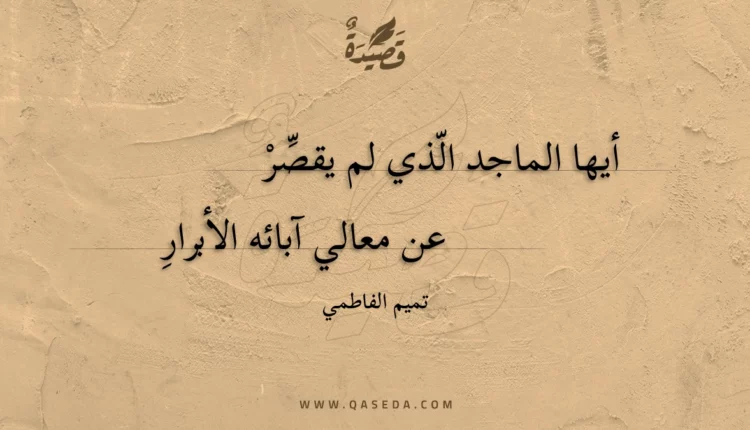 قَصِيْدَةٌ
أيها الماجد الّذي لم يقصِّرْ
عن معالي آبائه الأبرارِ
تميم الفاطمي
WWW.QASEDA.COM